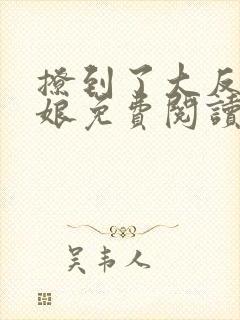 撩到了大反
娘免費閱讀
吴韦人